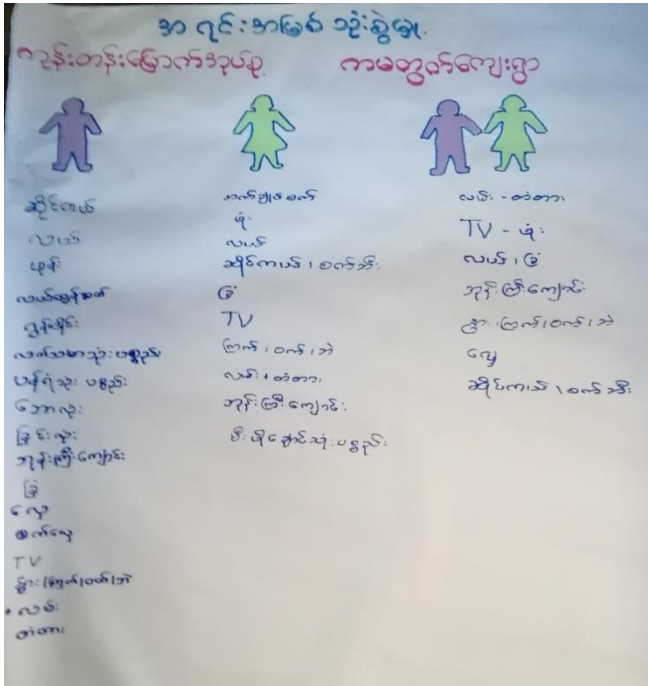 အရင်းအမြစ်သုံးစွဲမှု
ကုန်းတန်းမြောက်အုပ်စု ကမတွက်ကျေးရွာ
ဆိုင်ကယ်
လယ်
ဖုန်း
လယ်ထွန်စက်
လက်သမားသုံးပစ္စည်း
ပန်ရံသုံး ပစ္စည်း
ဘောလုံး
ခြင်းလုံး
ဘုန်းကြီးကျောင်း
ခြံ
လှေ
စက်လှေ
TV
နွား၊ကြက်၊ဝက်၊ဘဲ
လမ်း
တံတား
အက်ချုပ်စက်
ဖုံး
လယ်
ဆိုင်ကယ်၊ စက်ဘီး
ခြံ
TV
ကြက်၊ ဝက်၊ ဘဲ
လမ်း၊ တံတား
ဘုန်းကြီးကျောင်း
မီးဖိုချောင်သုံးပစ္စည်း
လမ်း - တံတား
TV - ဖုံး
လယ်၊ ခြံ
ဘုန်းကြီးကျောင်း
နွား၊ ကြက်၊ ဝက်၊ ဘဲ
လှေ
ဆိုင်ကယ်၊ စက်ဘီး